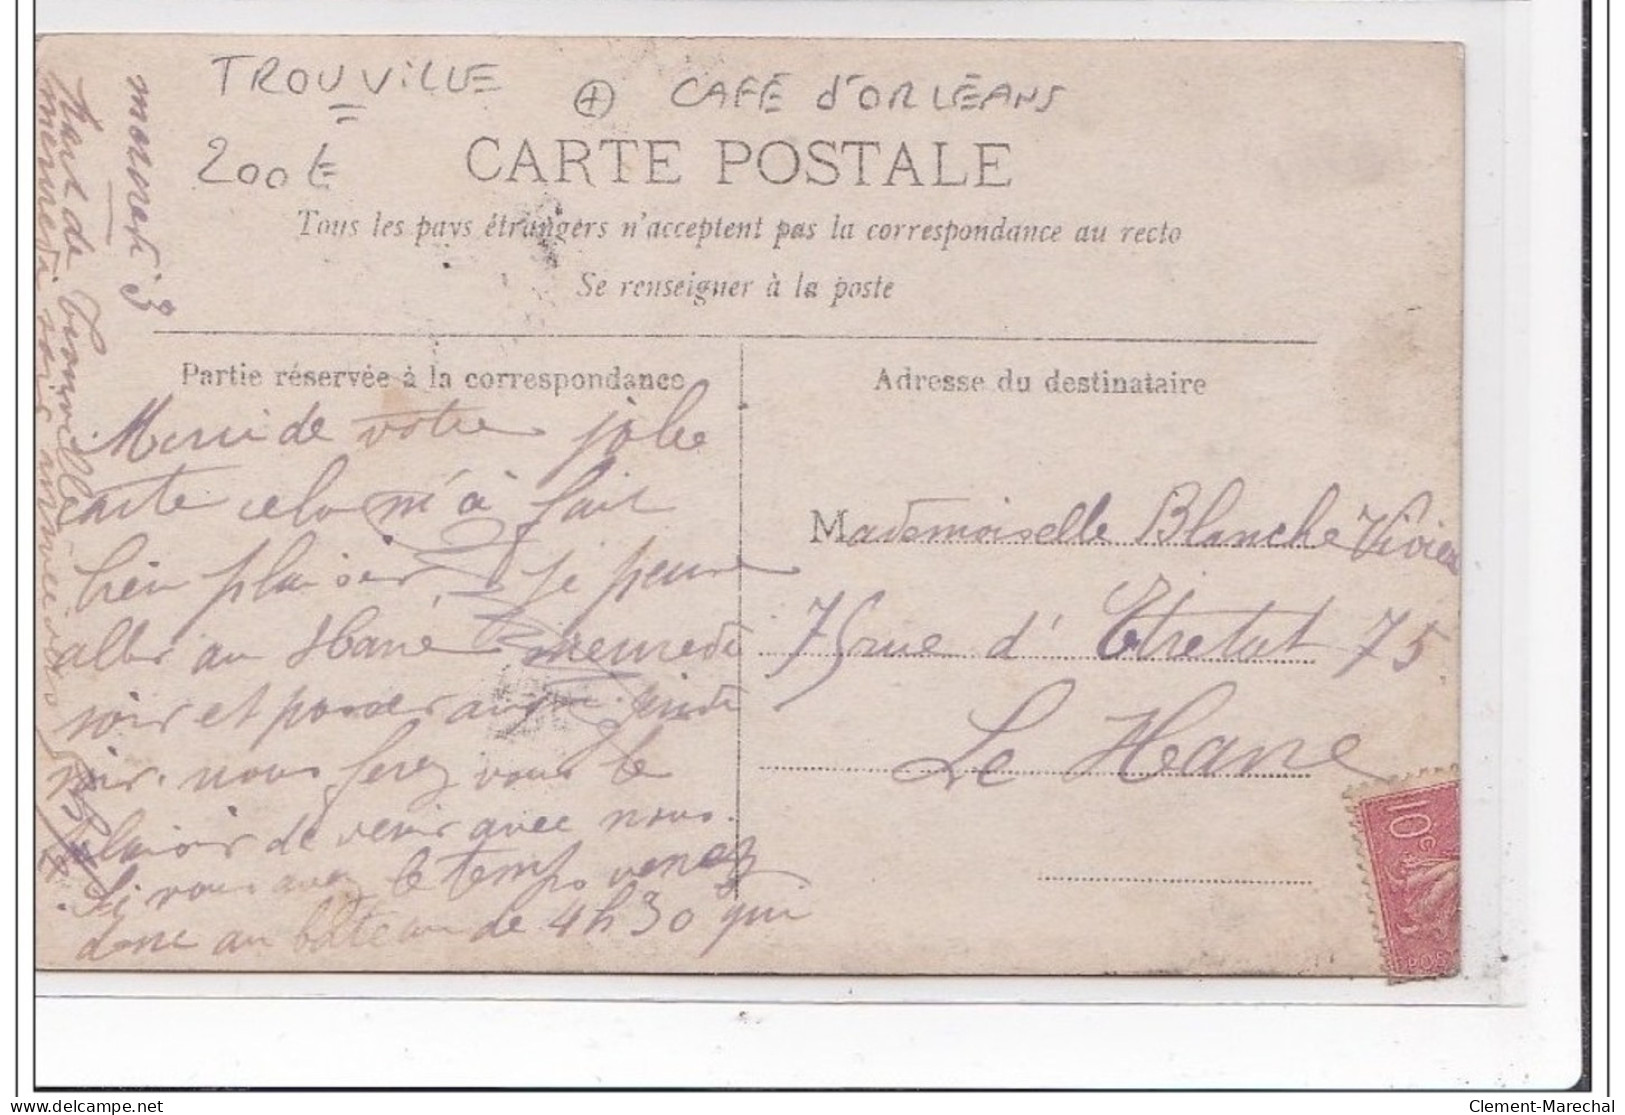 TROUVILLE + CAFÉ D'ORLÉANS
200€
CARTE POSTALE
Tous les pays étrangers n'acceptent pas la correspondance au recto
Se renseigner à la poste
Partie réservée à la correspondance
Adresse du destinataire
Merci de votre jolie
carte cela m'à fait
bien plaisir, je pense
aller au Havre mercredi
soir et passer jeudi
nous ferez vous le
plaisir de venir avec nous.
Si vous avez le temps venez
donc au bateau de 4h30 qui
part de Trouville
mercredi soir
Mademoiselle Blanche Vivien
75 rue d'Etretat 75
Le Havre
10c
POS
Clement-Marechal